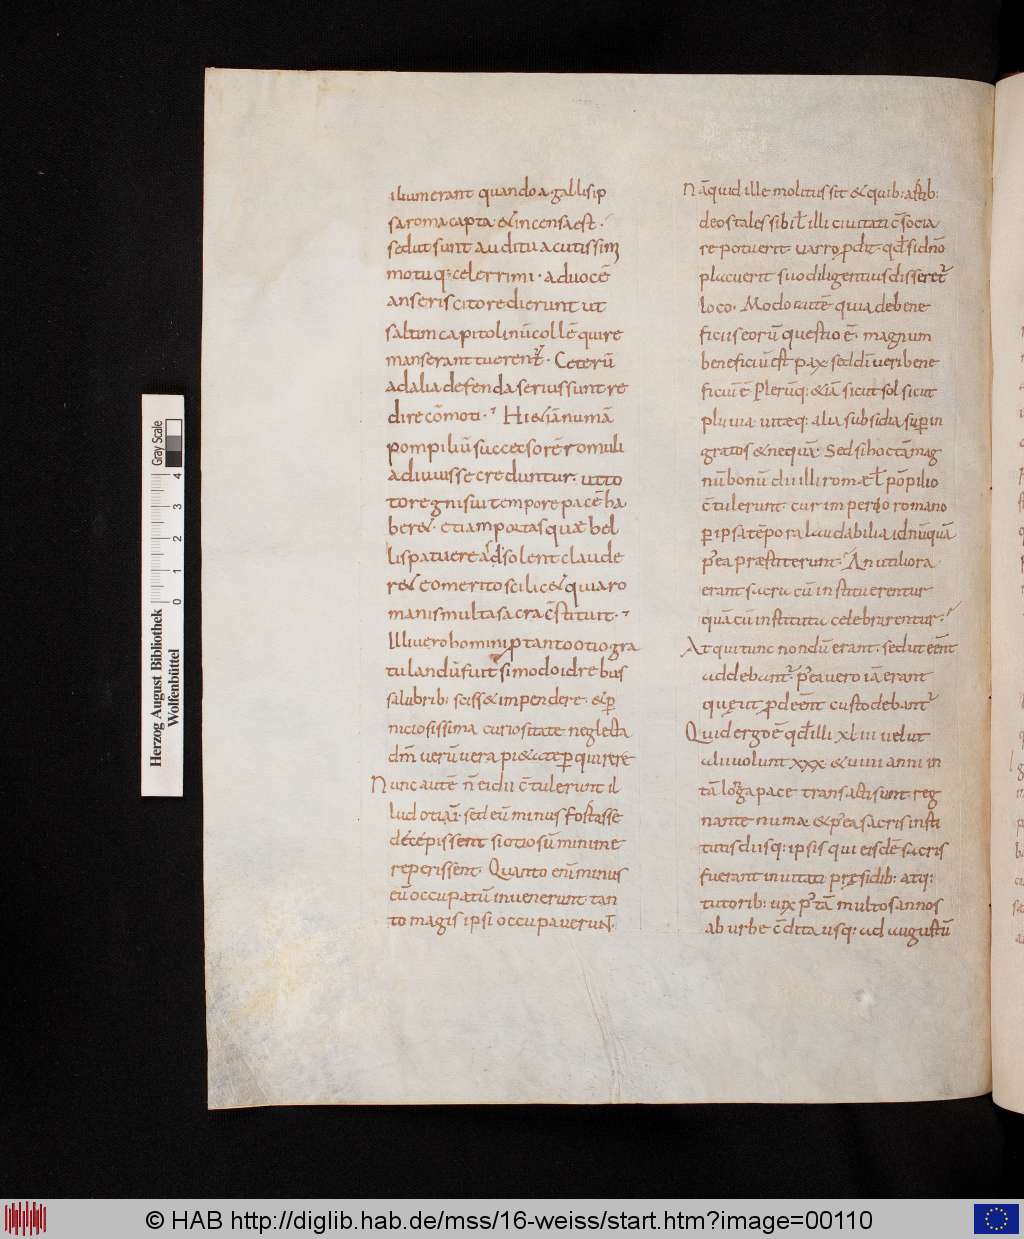 ili un erant quando a gallis ip
sa roma capta & incensa est·
sed ut sunt auditu acutissim
motuq; celerrimi· ad uocē
anseris cito redierunt ut
saltim capitolinū collē qui re
manserant tuerent· Ceterū
ad alia defendas erius sunt re
dire cōmoti· Hi & iā numā
pompiliū successorē romuli
adiuuisse creduntur· ut to
to regni sui tempore pacē ha
ber&· & iam portasquae bel
lis patuere adsolent claude
r& eo merito scilic& quia ro
manis multa sacra c̄stituit·
Illi uero homini p tanto otio gra
tulandū fuit si modo id rebus
salubrib: sciss& impendere· & p
niciosissima curiositate neglecta
dm̄ uerū uera pi&ate pquirere
Nunc autē n̄ ei dii c̄tulerunt il
lud otiū· sed eū minus fortasse
decepissent si otiosū minime
repperissent· Quanto enī minus
eū occupatū inuenerunt tan
to magis ipsi occupauerunt·
Nā quid ille molitus sit & quib: artib:
deos tales sibi ł illi ciuitati c̄socia
re potuerit· uarro pdit· qd si dn̄o
placuerit suo diligentius disseret
loco· Modo autē quia de bene
ficiis eorū questio ē· magnum
beneficiū est pax sed dī ueri bene
ficiū ē Plerūq: &iā sicut sol sicut
pluuia uitaeq: alia subsidia sup in
gratos & nequā· Sed si hoc tā mag
nū bonū dii illi romae ł pōpilio
c̄tulerunt· cur imperio romano
p ipsa tēpora laudabilia id nūquā
p'ea praestiterunt· An utiliora
erant sacra cū instituerentur
quā cū instituta celebrarentur·
Atqui tunc nondū erant· sed ut eēnt
addebant· p'ea uero iā erant
quę ut pdeēnt custodiebant
Quid ergo ē qd illi xliii uel ut
alii uolunt xxx & uiiii anni in
tā longa pace transacti sunt reg
nante numa· & p'ea sacris insti
tutis diisq: ipsis qui eisdē sacris
fuerant inuitati pręsidib: atq:
tutorib: uix p' tā multos annos
ab urbe c̄dita usq: ad augustū
Herzog August Bibliothek
Wolfenbüttel
Gray Scale
0 1 2 3 4
© HAB http://diglib.hab.de/mss/16-weiss/start.htm?image=00110